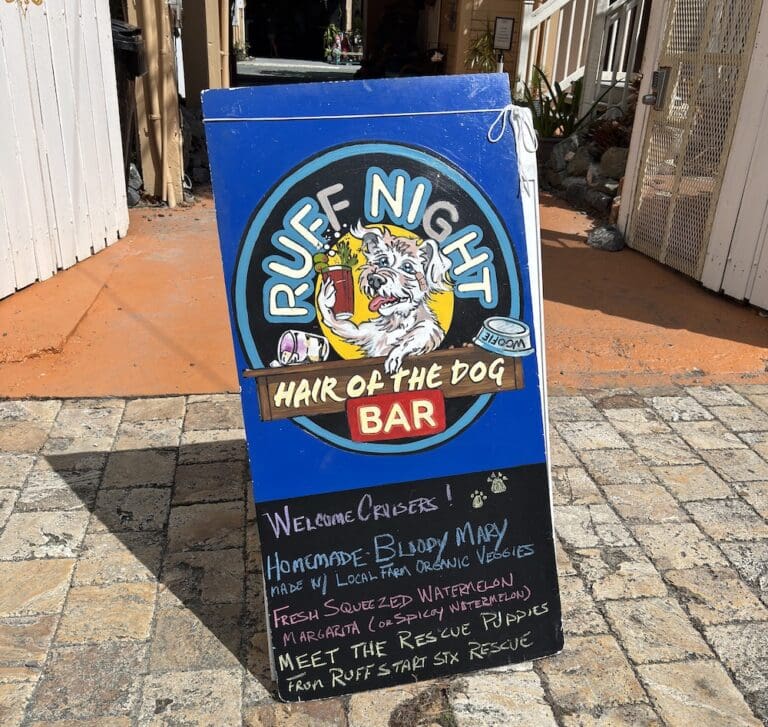 RUFF NIGHT
WOOFIE
HAIR OF THE DOG
BAR
WELCOME CRUISERS!
HOMEMADE BLOODY MARY
MADE W/ LOCAL FARM ORGANIC VEGGIES
FRESH SQUEEZED WATERMELON
MARGARITA (OR SPICY WATERMELON)
MEET THE RESCUE PUPPIES
FROM RUFF START STX RESCUE